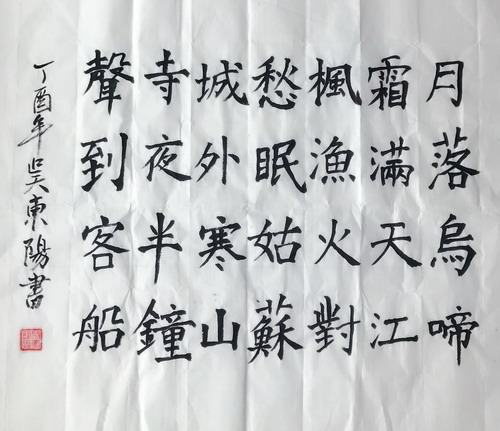 月落烏啼
霜滿天江
楓漁火對
愁眠姑蘇
城外寒山
寺夜半鐘
聲到客船
丁酉年吳東陽書